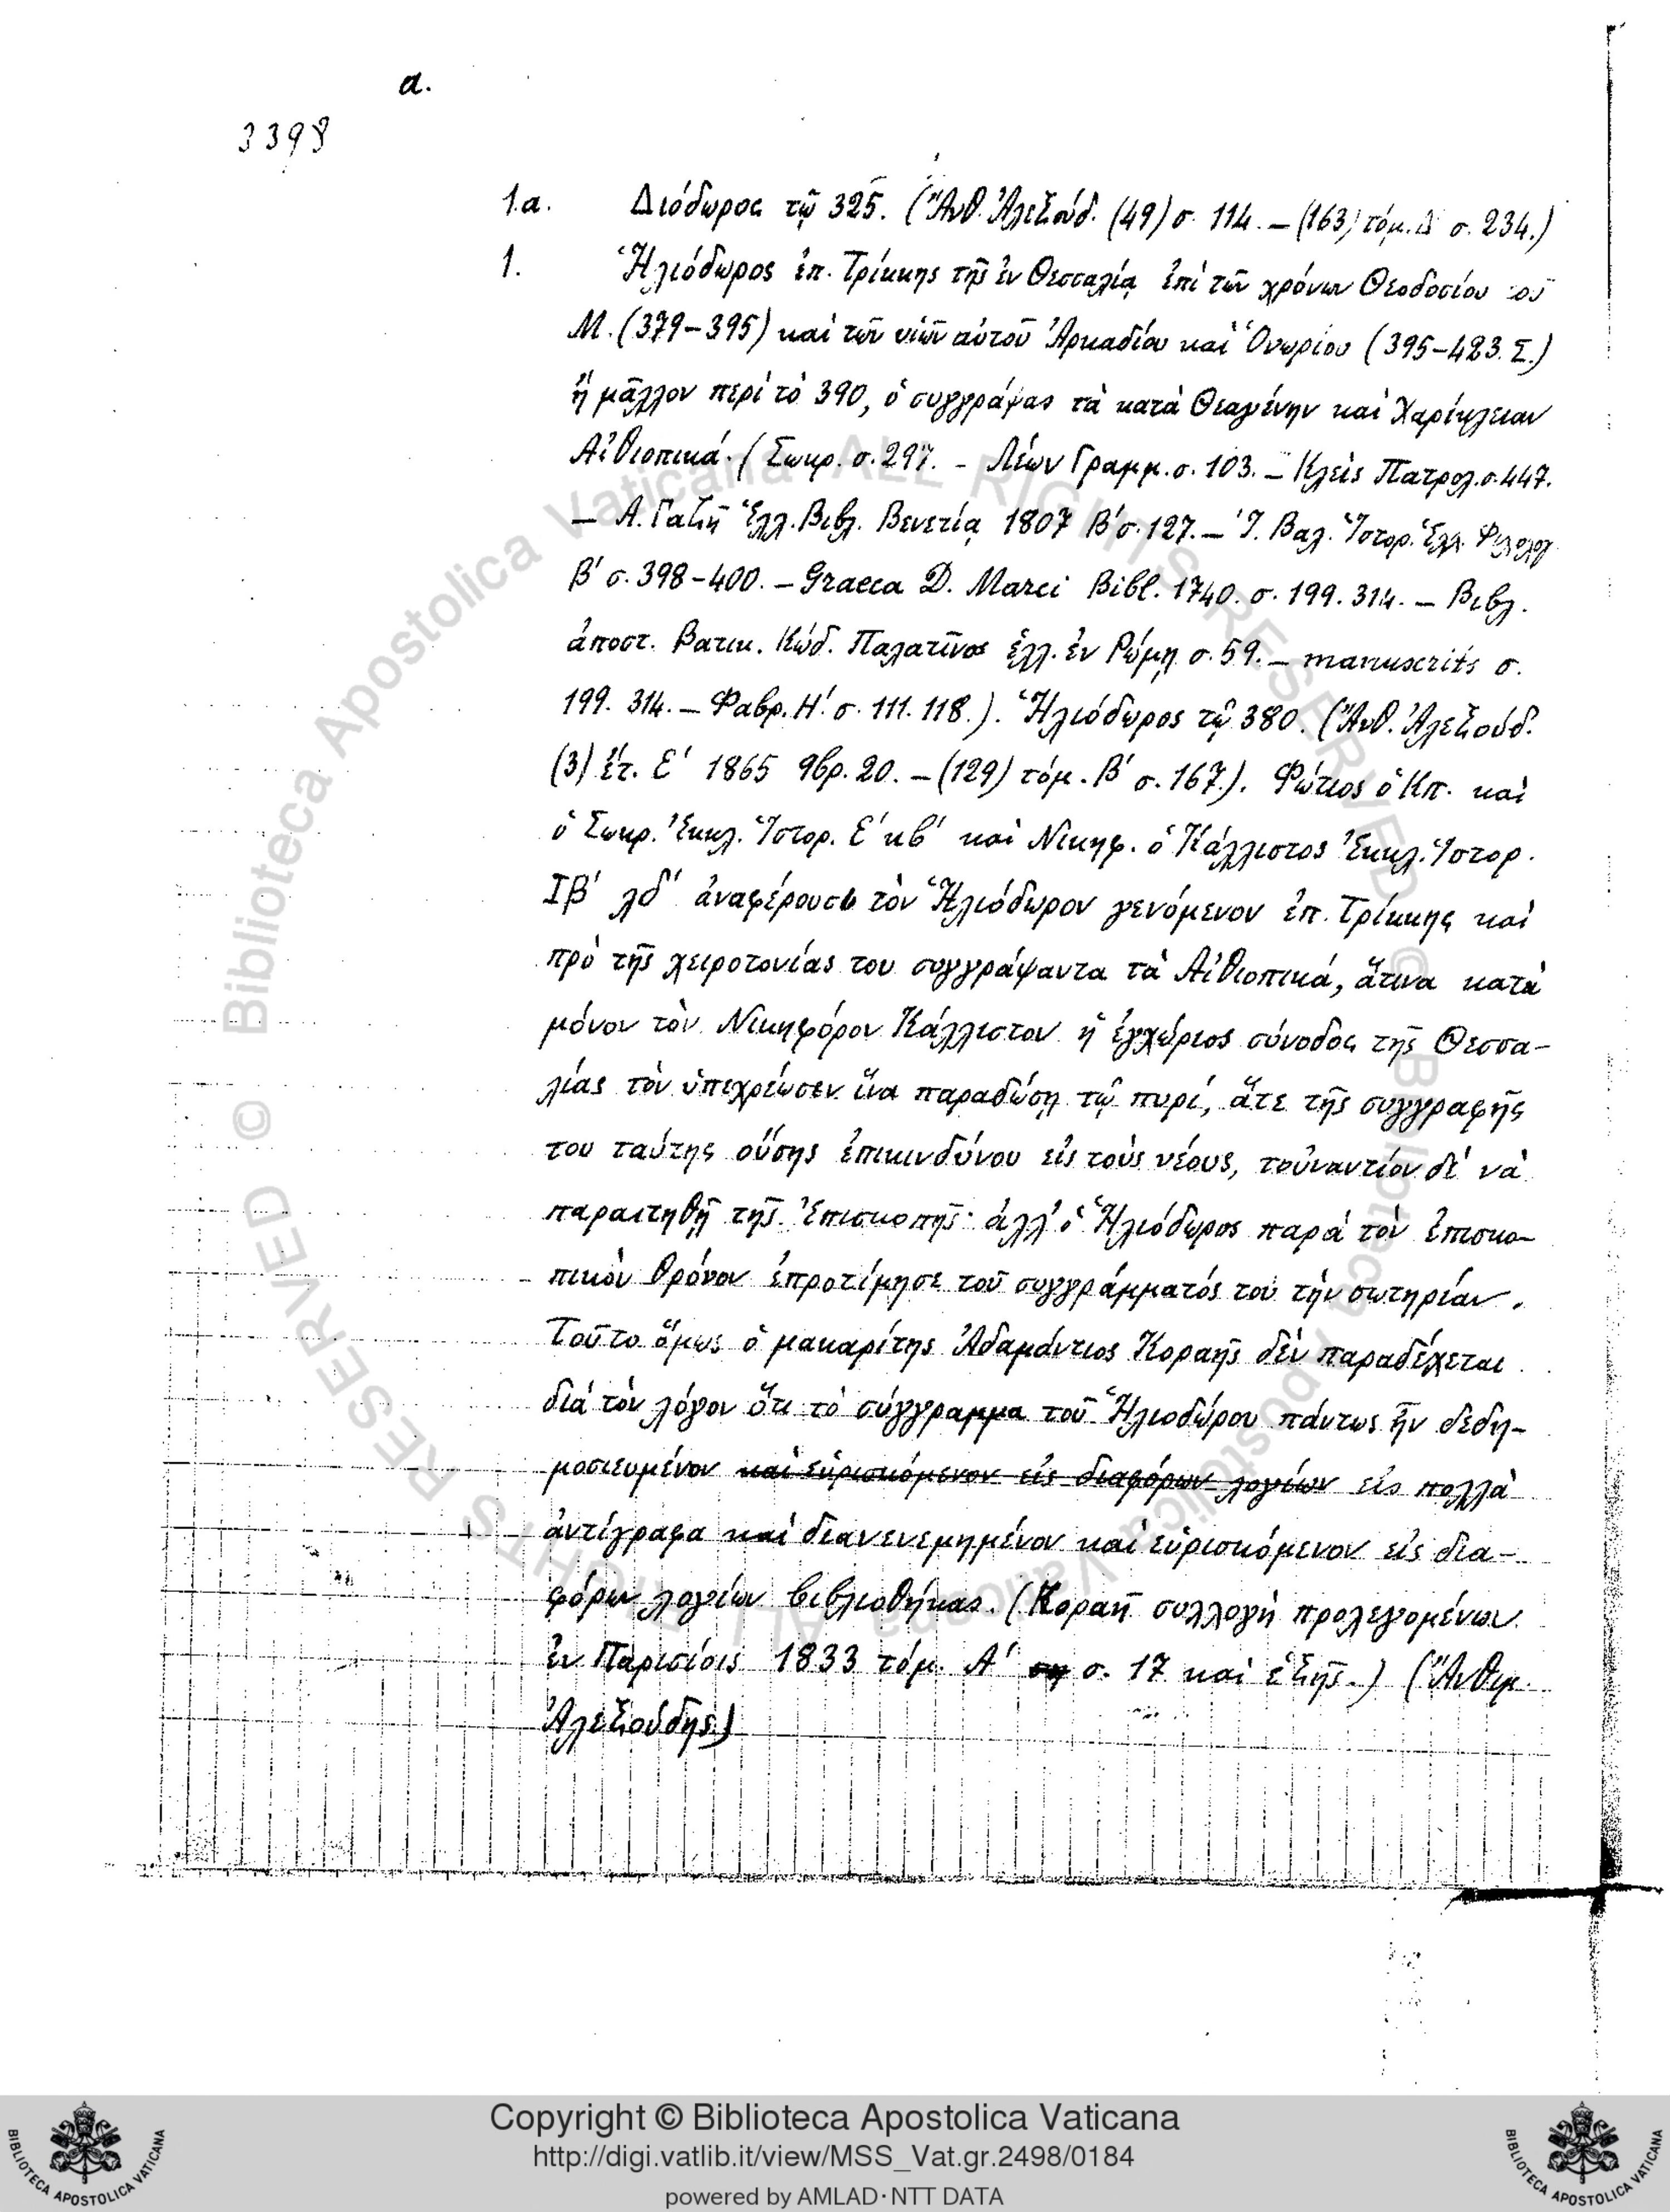 α.
3398
1.α. Διόδωρος τῷ 325. (Ἄνθ. Ἀλεξούδ. (49) σ. 114. — (163) τόμ. Δ σ. 234.)
1. Ἡλιόδωρος ἐπ. Τρίκκης τῆς ἐν Θεσσαλίᾳ ἐπὶ τῶν χρόνων Θεοδοσίου τοῦ
Μ. (379–395) καὶ τῶν υἱῶν αὐτοῦ Ἀρκαδίου καὶ Ὁνωρίου (395–423. Σ.)
ἢ μᾶλλον περὶ τὸ 390, ὁ συγγράψας τὰ κατὰ Θεαγένην καὶ Χαρίκλειαν
Αἰθιοπικά. (Σωκρ. σ. 297. – Λέων Γραμμ. σ. 103. – Κλεὶς Πατρολ. σ. 447.
– Α. Γαζῆ Ἑλλ. Βιβλ. Βενετίᾳ 1807 Β΄ σ. 127. – Ἰ. Βαλ. Ἱστορ. Ἑλλ. Φιλολογ
Β΄ σ. 398–400. – Graeca D. Marci Bibl. 1740. σ. 199. 314. – Βιβλ.
ἀποστ. Βατικ. Κώδ. Παλατῖνος ἑλλ. ἐν Ρώμῃ σ. 59. – manuscrits σ.
199. 314. – Φαβρ. Η΄. σ. 111. 118.). Ἡλιόδωρος τῷ 380. (Ἄνθ. Ἀλεξούδ.
(3) ἔτ. Ε΄ 1865 9βρ. 20. – (129) τόμ. Β΄ σ. 167.). Φώτιος ὁ Κπ. καὶ
ὁ Σωκρ. Ἐκκλ. Ἱστορ. Ε΄ κβ΄ καὶ Νικηφ. ὁ Κάλλιστος Ἐκκλ. Ἱστορ.
ΙΒ΄ λδ΄ ἀναφέρουσι τὸν Ἡλιόδωρον γενόμενον ἐπ. Τρίκκης καὶ
πρὸ τῆς χειροτονίας του συγγράψαντα τὰ Αἰθιοπικά, ἅτινα κατὰ
μόνον τὸν Νικηφόρον Κάλλιστον ἡ ἐγχώριος σύνοδος τῆς Θεσσα–
λίας τὸν ὑπεχρέωσεν ἵνα παραδώσῃ τῷ πυρί, ἅτε τῆς συγγραφῆς
του ταύτης οὔσης ἐπικινδύνου εἰς τοὺς νέους, τοὐναντίον δὲ νὰ
παραιτηθῇ τῆς Ἐπισκοπῆς· ἀλλ' ὁ Ἡλιόδωρος παρὰ τὸν ἐπισκο–
πικὸν θρόνον ἐπροτίμησε τοῦ συγγράμματός του τὴν σωτηρίαν.
Τοῦτο ὅμως ὁ μακαρίτης Ἀδαμάντιος Κοραῆς δὲν παραδέχεται
διὰ τὸν λόγον ὅτι τὸ σύγγραμμα τοῦ Ἡλιοδώρου πάντως ἦν δεδη–
μοσιευμένον καὶ εὑρισκόμενον εἰς διαφόρων λογίων εἰς πολλὰ
ἀντίγραφα καὶ διανενεμημένον καὶ εὑρισκόμενον εἰς δια–
φόρων λογίων βιβλιοθήκας. (Κοραῆ συλλογὴ προλεγομένων
ἐν Παρισίοις 1833 τόμ. Α΄ σ. 17 καὶ ἑξῆς.) (Ἄνθιμ.
Ἀλεξούδης)
© Biblioteca Apostolica Vaticana ALL RIGHTS RESERVED © Biblioteca Apostolica Vaticana ALL RIGHTS RESERVED
BIBLIOTECA APOSTOLICA VATICANA
Copyright © Biblioteca Apostolica Vaticana
http://digi.vatlib.it/view/MSS_Vat.gr.2498/0184
powered by AMLAD·NTT DATA
BIBLIOTECA APOSTOLICA VATICANA